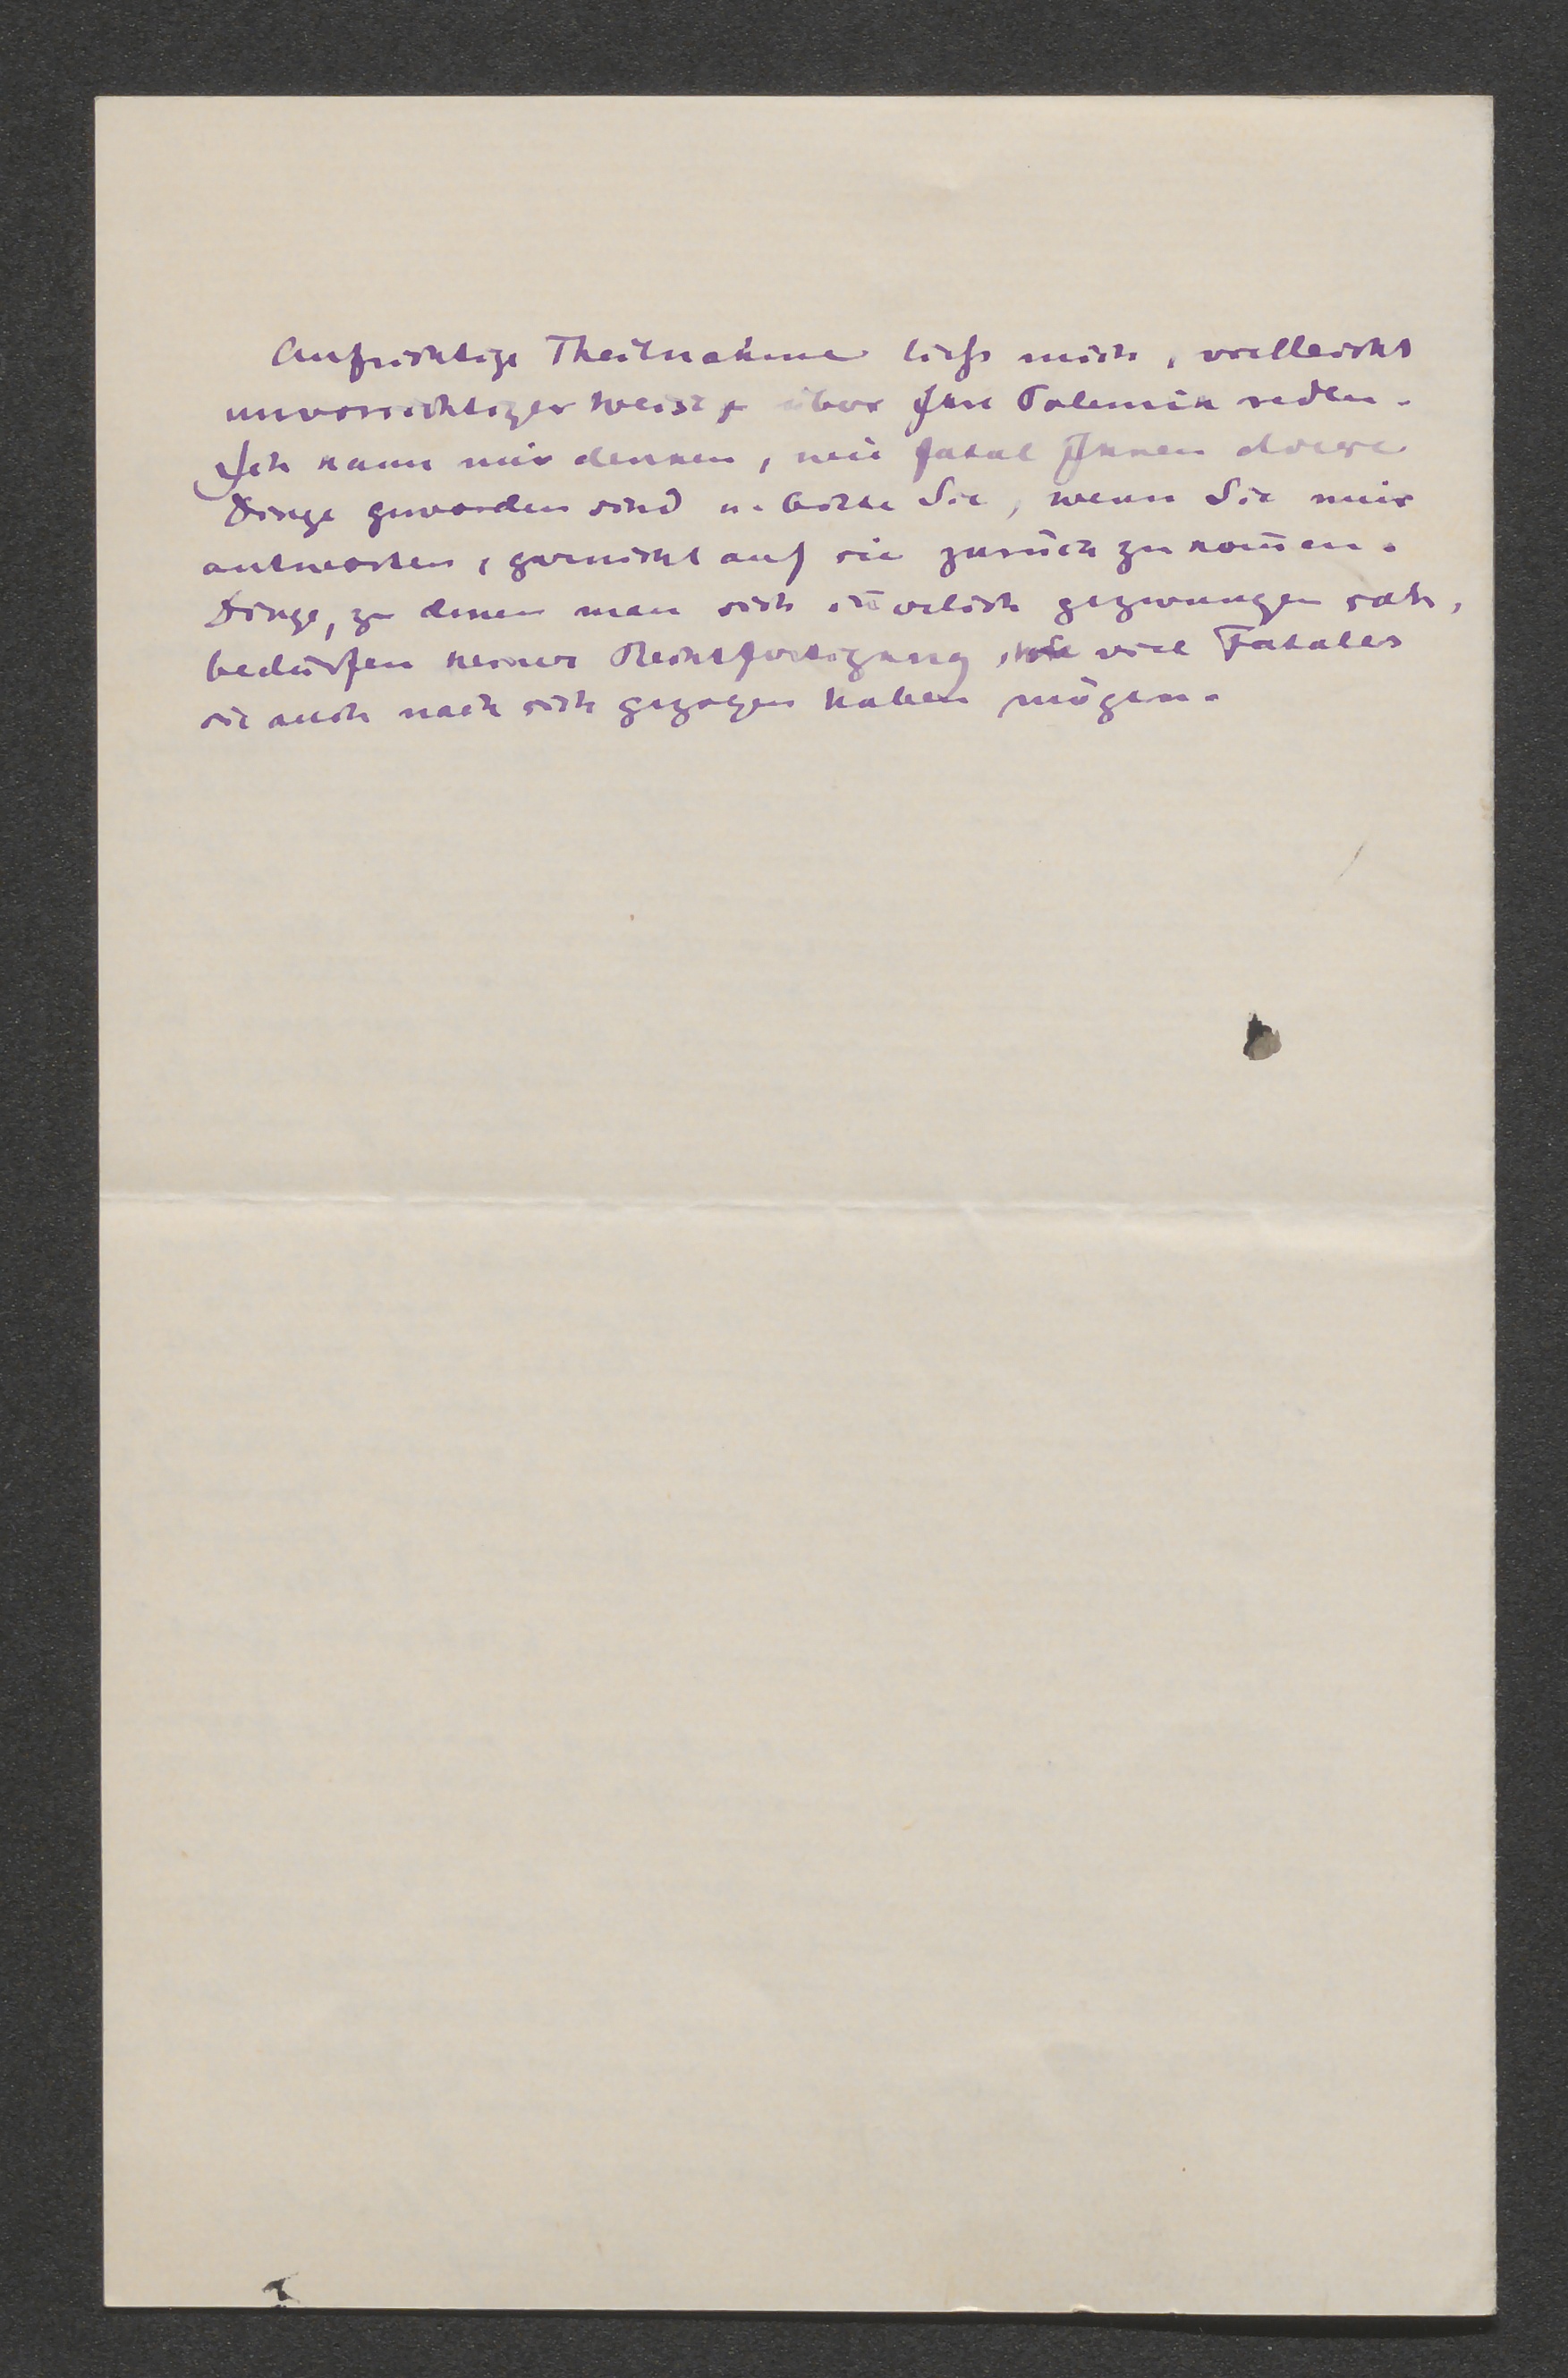 Aufrichtige Theilnahme liess mich, vielleicht
unvorsichtiger Weise, über Ihre Polemik reden.
Ich kann mir denken, wie fatal Ihnen diese
Dinge geworden sind u. bitte Sie, wenn Sie mir
antworten, garnicht auf sie zurück zu kom̄en.
Dinge, zu denen man sich in̄erlich gezwungen sah,
bedürfen keiner Rechtfertigung, wie viel Fatales
sie auch nach sich gezogen haben mögen.